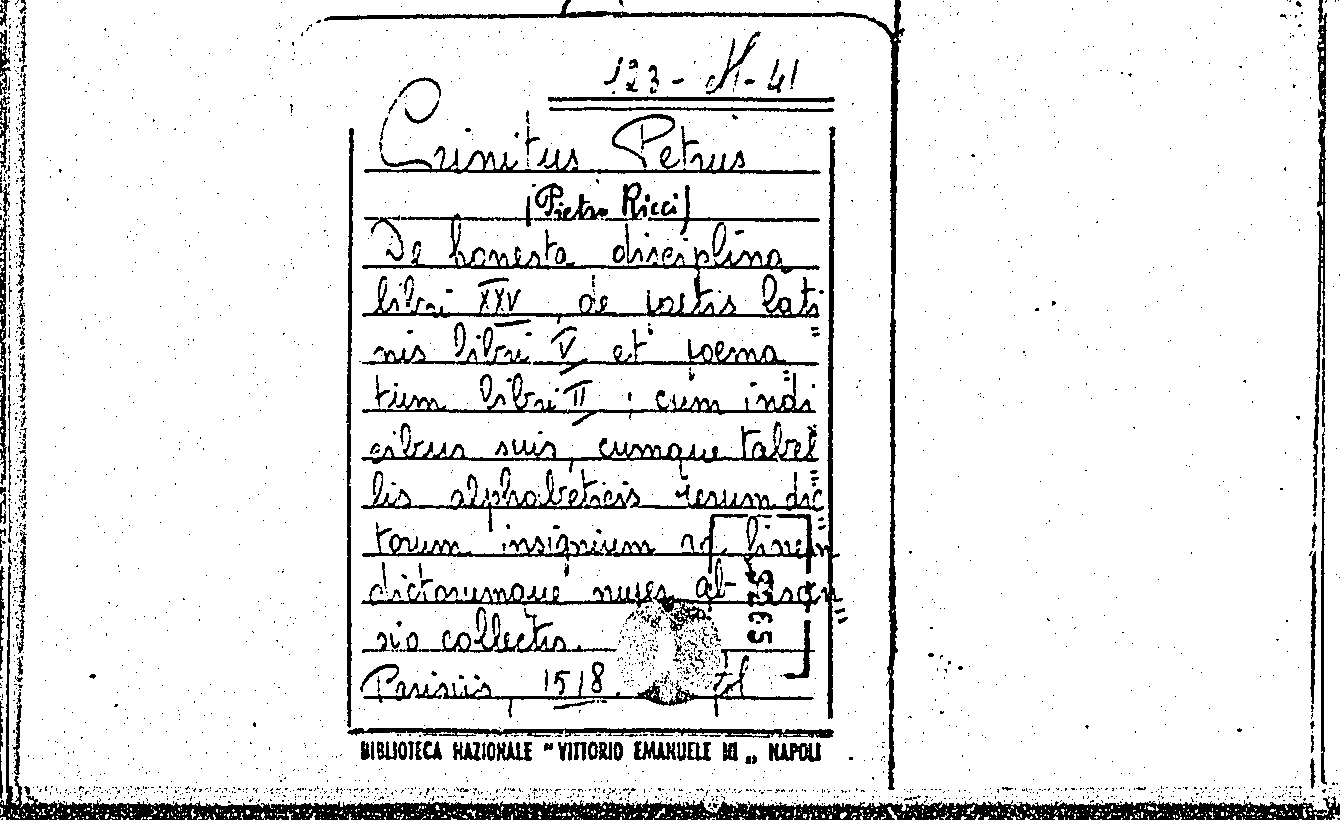 123 - H - 41
Crinitus Petrus
(Pietro Ricci)
De honesta disciplina
libri XXV, de poetis lati
nis libri V et poema
tum libri II ; cum indi
cibus suis, cumque tabel
lis alphabeticis rerum dic
torum insignium
dictorumque nuper ab Ascen
sio collectis.
Parisiis, 1518. fol
BIBLIOTECA NAZIONALE "VITTORIO EMANUELE III" NAPOLI